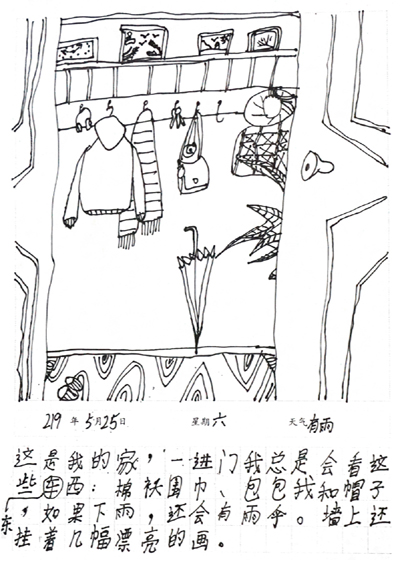 219 年 5月25日 星期六 天气有雨
这是我的家，一进门我总是会看这
些车西：棉袄围巾、包包我和帽子
，如果下雨，还会有雨伞。墙上还
东
挂着几幅漂亮的画。